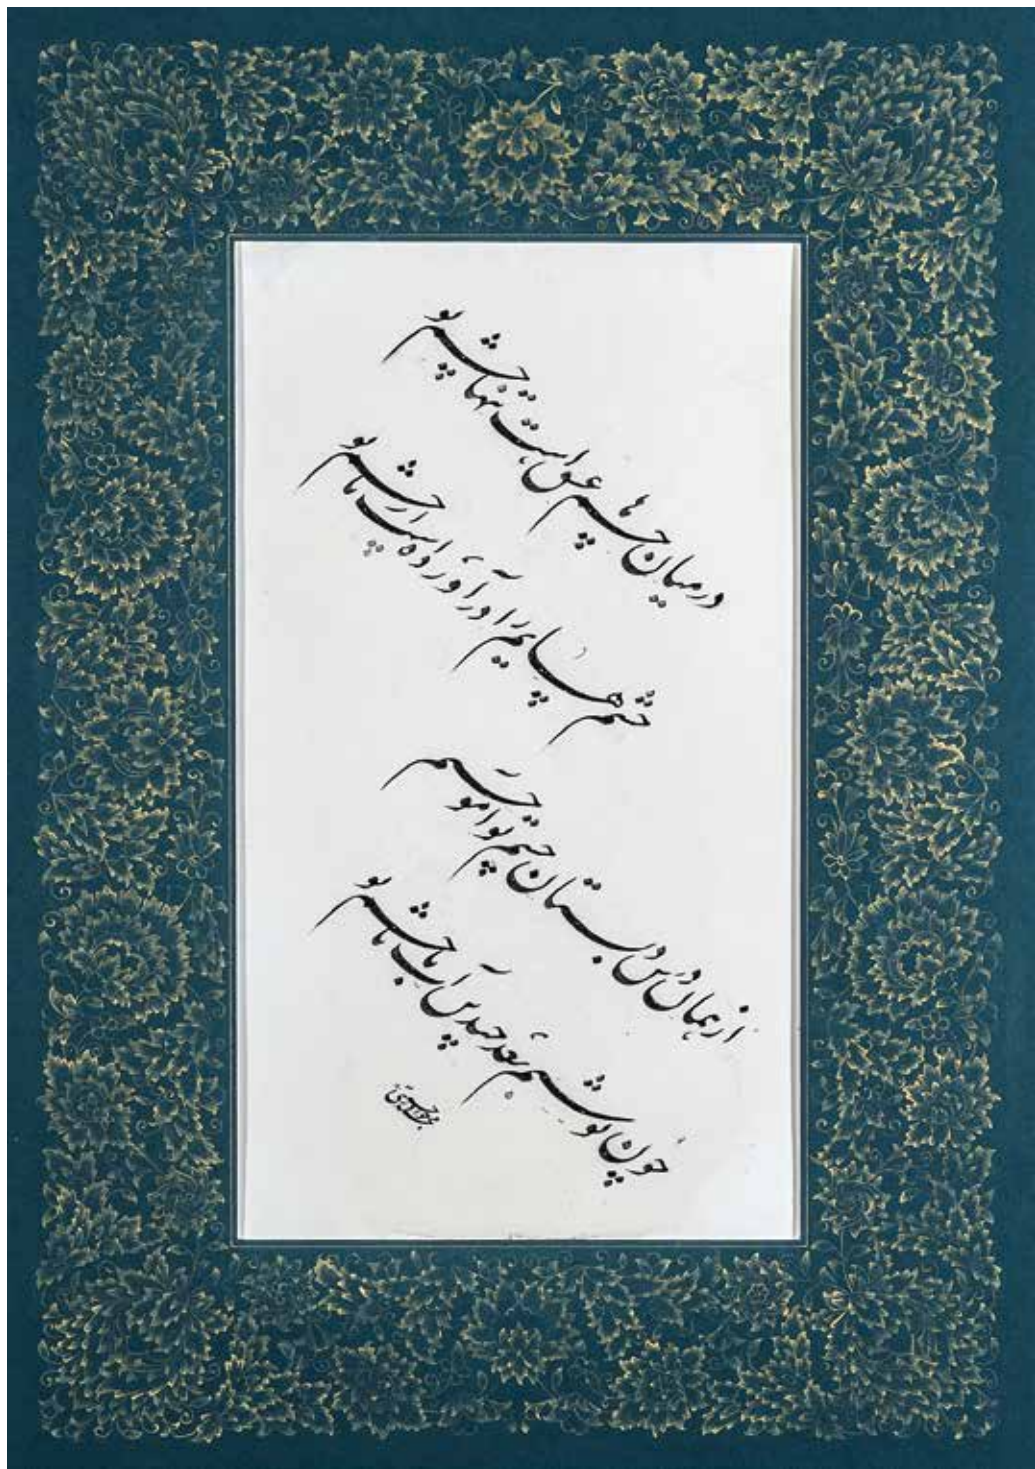 در میان چشم ها عشق است تنها چشم تو
چشم هایم را درآورده است از پا چشم تو
از همان درس دبستان چشم تو آموختم
چون نوشتم بعد چندین آب بابا چشم تو